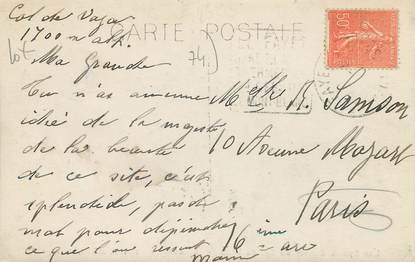 CARTE POSTALE
Col de Voza
1700 m alt.
Lot
74
Ma Grande
Tu n'as aucune
idée de la majesté
de la beauté
de ce site, c'est
splendide, pas de
mot pour dépeindre
ce que l'on ressent
Mam
Melle R. Samson
10 Avenue Mozart
Paris
16 ième arr
50c